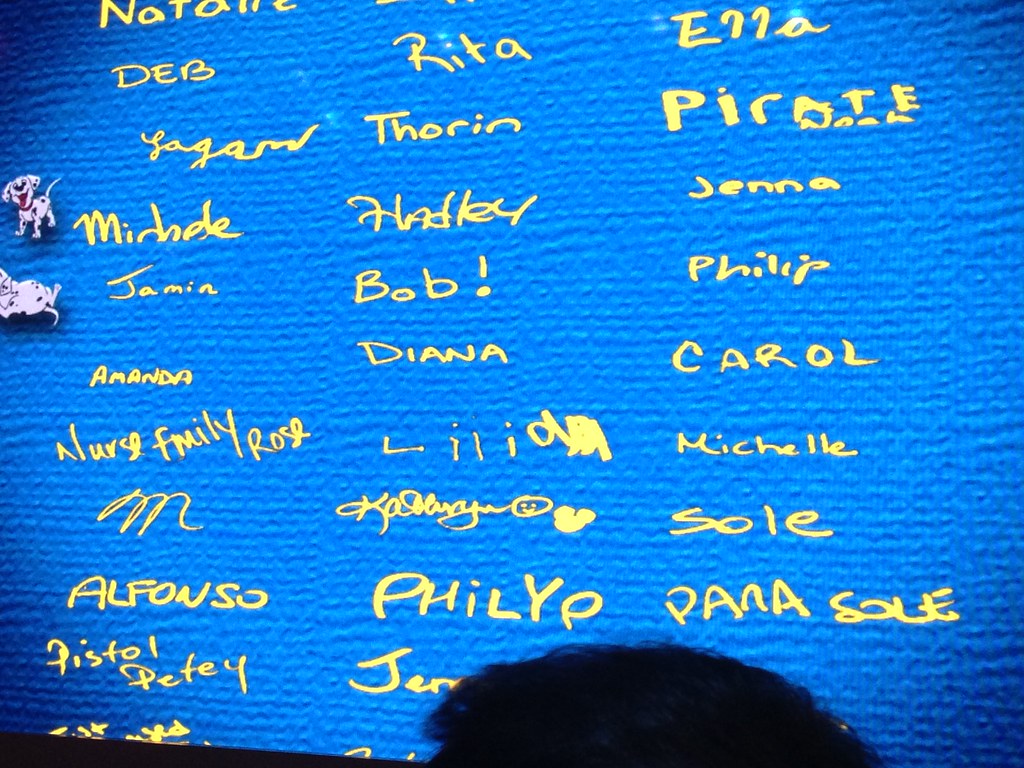 Natalie
DEB
Michele
Jamin
AMANDA
Nurse Emily Rose
M
ALFONSO
Pistol
Petey
Rita
Thorin
Hadley
Bob!
DIANA
Lili
Kathryn
PHiLYp
Jen
Ella
PirATE
Jenna
Philip
CAROL
Michelle
Sole
PARA SOLE